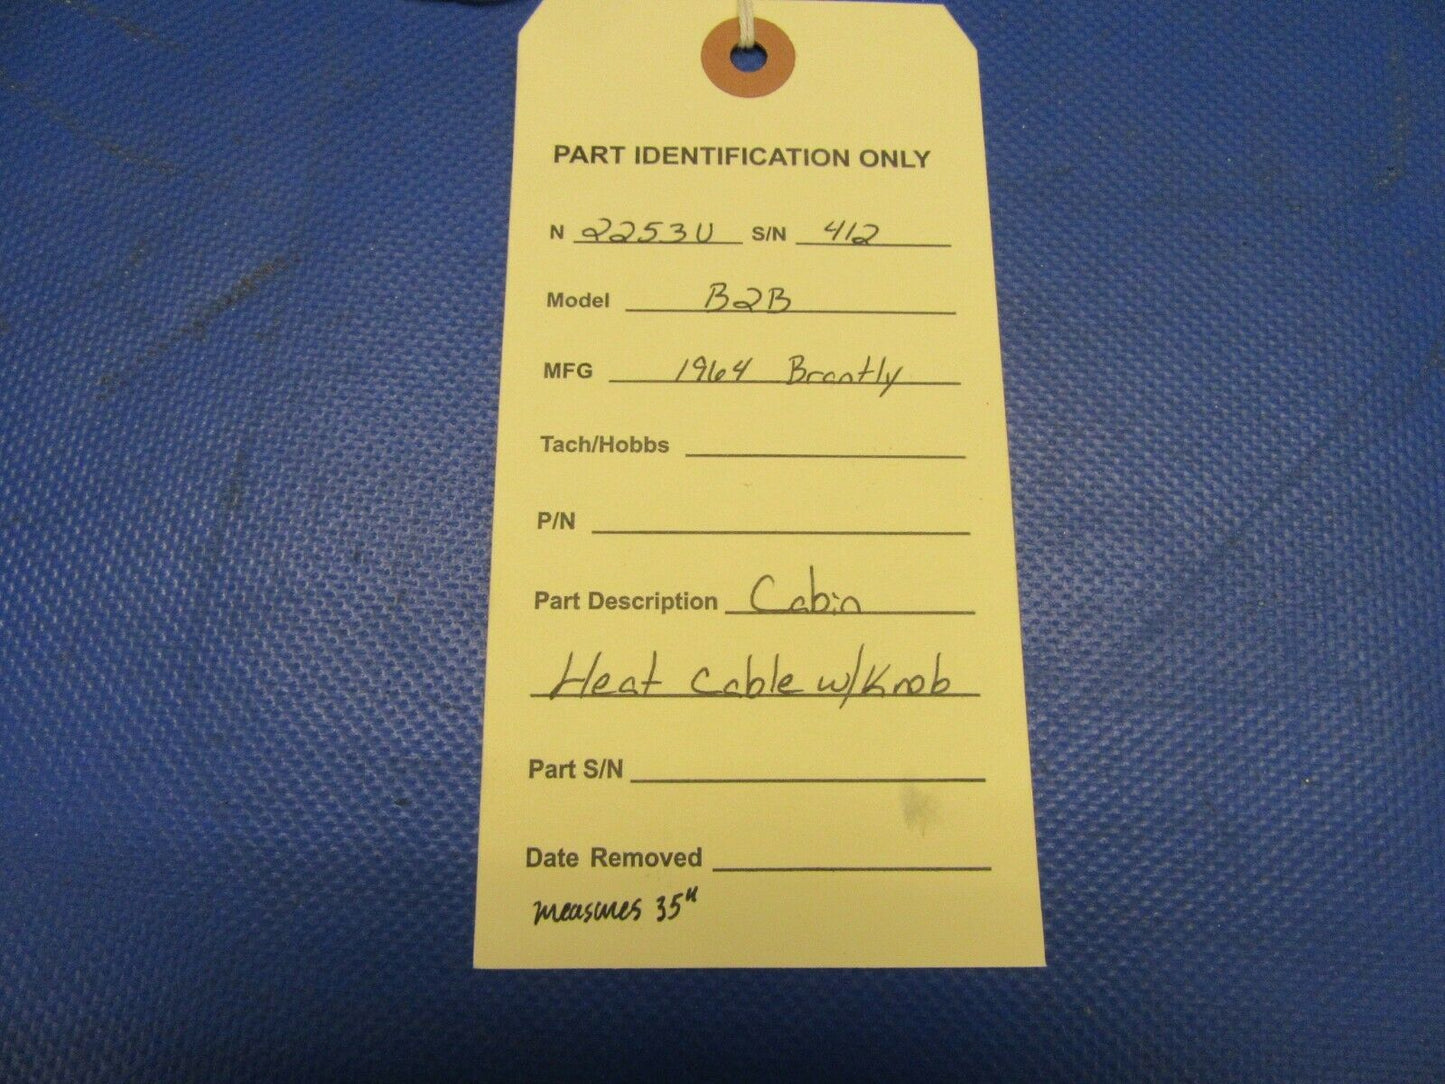 PART IDENTIFICATION ONLY
N 2253U S/N 412
Model B2B
MFG 1964 Brantly
Tach/Hobbs
P/N
Part Description Cabin
Heat Cable w/Knob
Part S/N
Date Removed
measures 35"